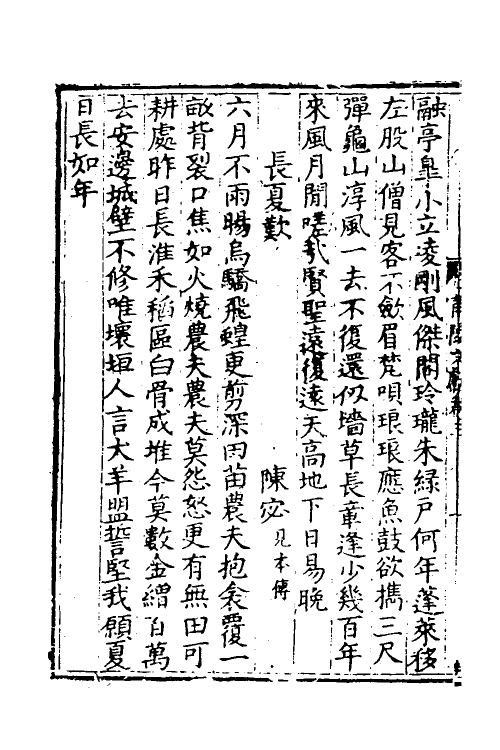 融亭皐小立凌剛風傑閣玲瓏朱緑戶何年蓬萊移
左股山僧見客不歛眉梵唄琅琅應魚鼓欲携三尺
彈龜山淳風一去不復還似墻草長輩逢少幾百年
來風月閒嗟我賢聖遠復遠天高地下日易晚
長夏歎 陳宓見本傳
六月不雨暘烏驕飛蝗更剪深田苗農夫抱衾覆一
畝背裂口焦如火燒農夫農夫莫怨怒更有無田可
耕處昨日長淮禾稻區白骨成堆今莫數金繒百萬
去安邊城壁不修唯壞垣人言犬羊盟誓堅我願夏
日長如年